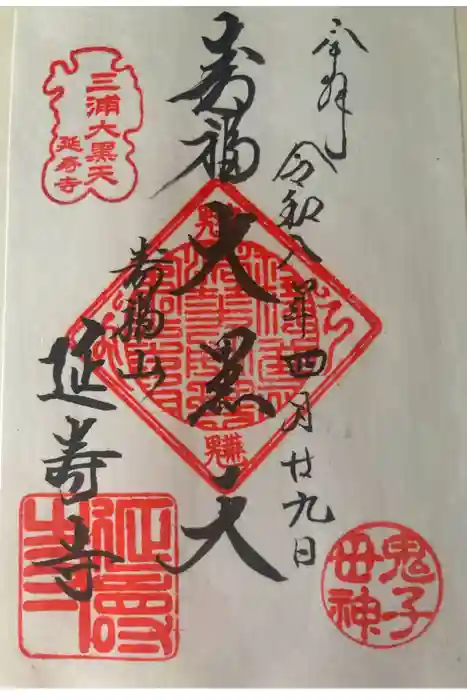 奉拝
令和八年四月廿九日
寿福大黒天
寿福山
延寿寺
三浦大黒天
延寿寺
鬼子母神
延壽寺